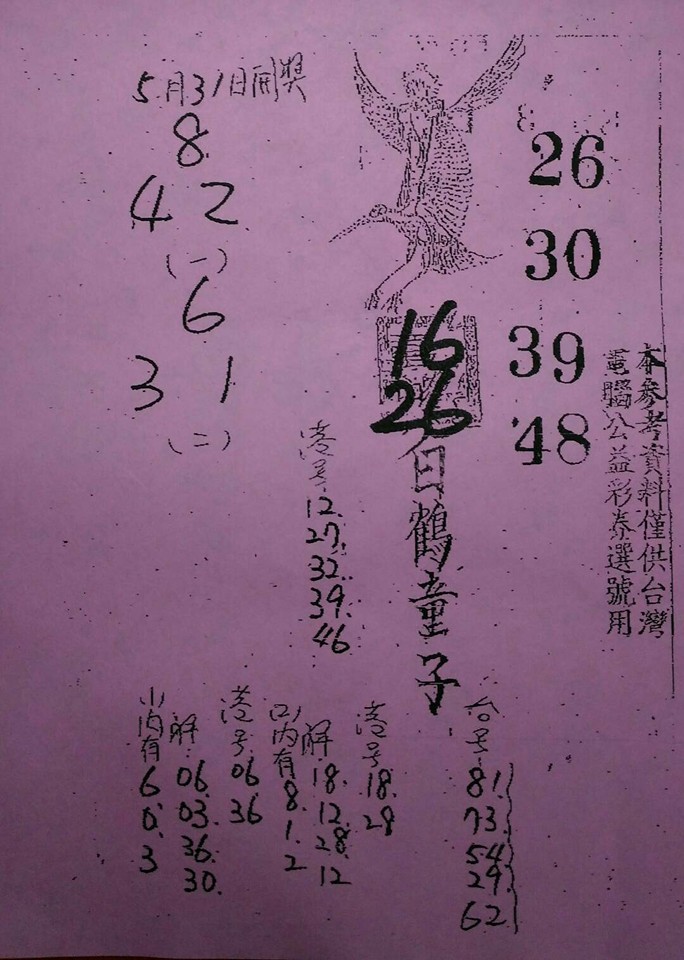 5月31日開獎
8
42
(一)
6
3 1
(二)
26
30
39
48
本參考資料僅供台灣
電腦公益彩券選號用
16
26
白鶴童子
港号
12.
27.
32.
39.
46
台号
81.
73.
54
29.
62
港号
18.
28
(二)内有
8.
1.
2
解
18.
12.
28.
12
港号
06.
36
(一)内有
6
0.
3
解
06.
03.
36.
30.